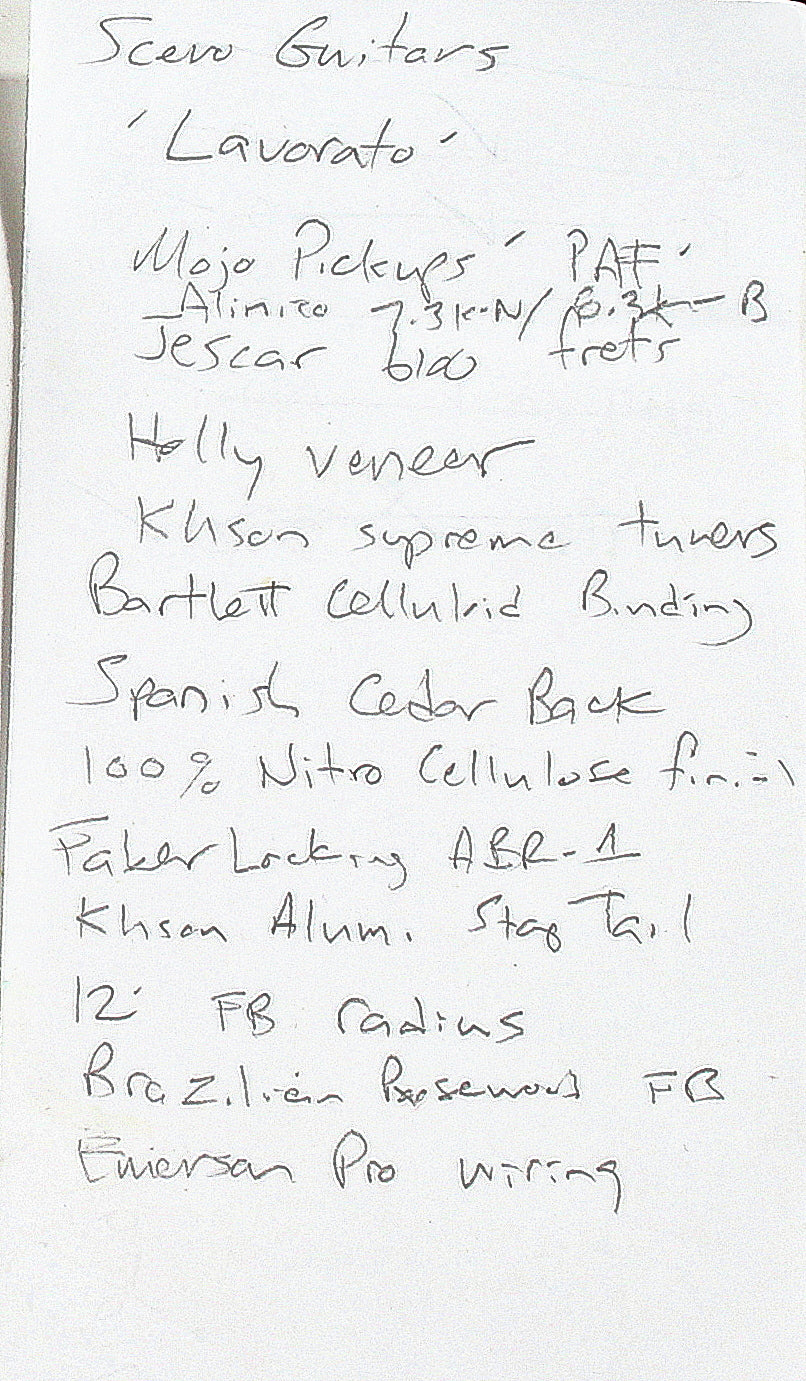 Scevo Guitars
'Lavorato'
Mojo Pickups 'PAF'
Alinico 7.3k-N/ 8.3k-B
Jescar 6100 frets
Holly veneer
Klison supreme tuners
Bartlett Celluloid Binding
Spanish Cedar Back
100% Nitro Cellulose finish
Faber Locking ABR-1
Klison Alum. Stop Tail
12" FB radius
Brazilian Rosewood FB
Emerson Pro wiring